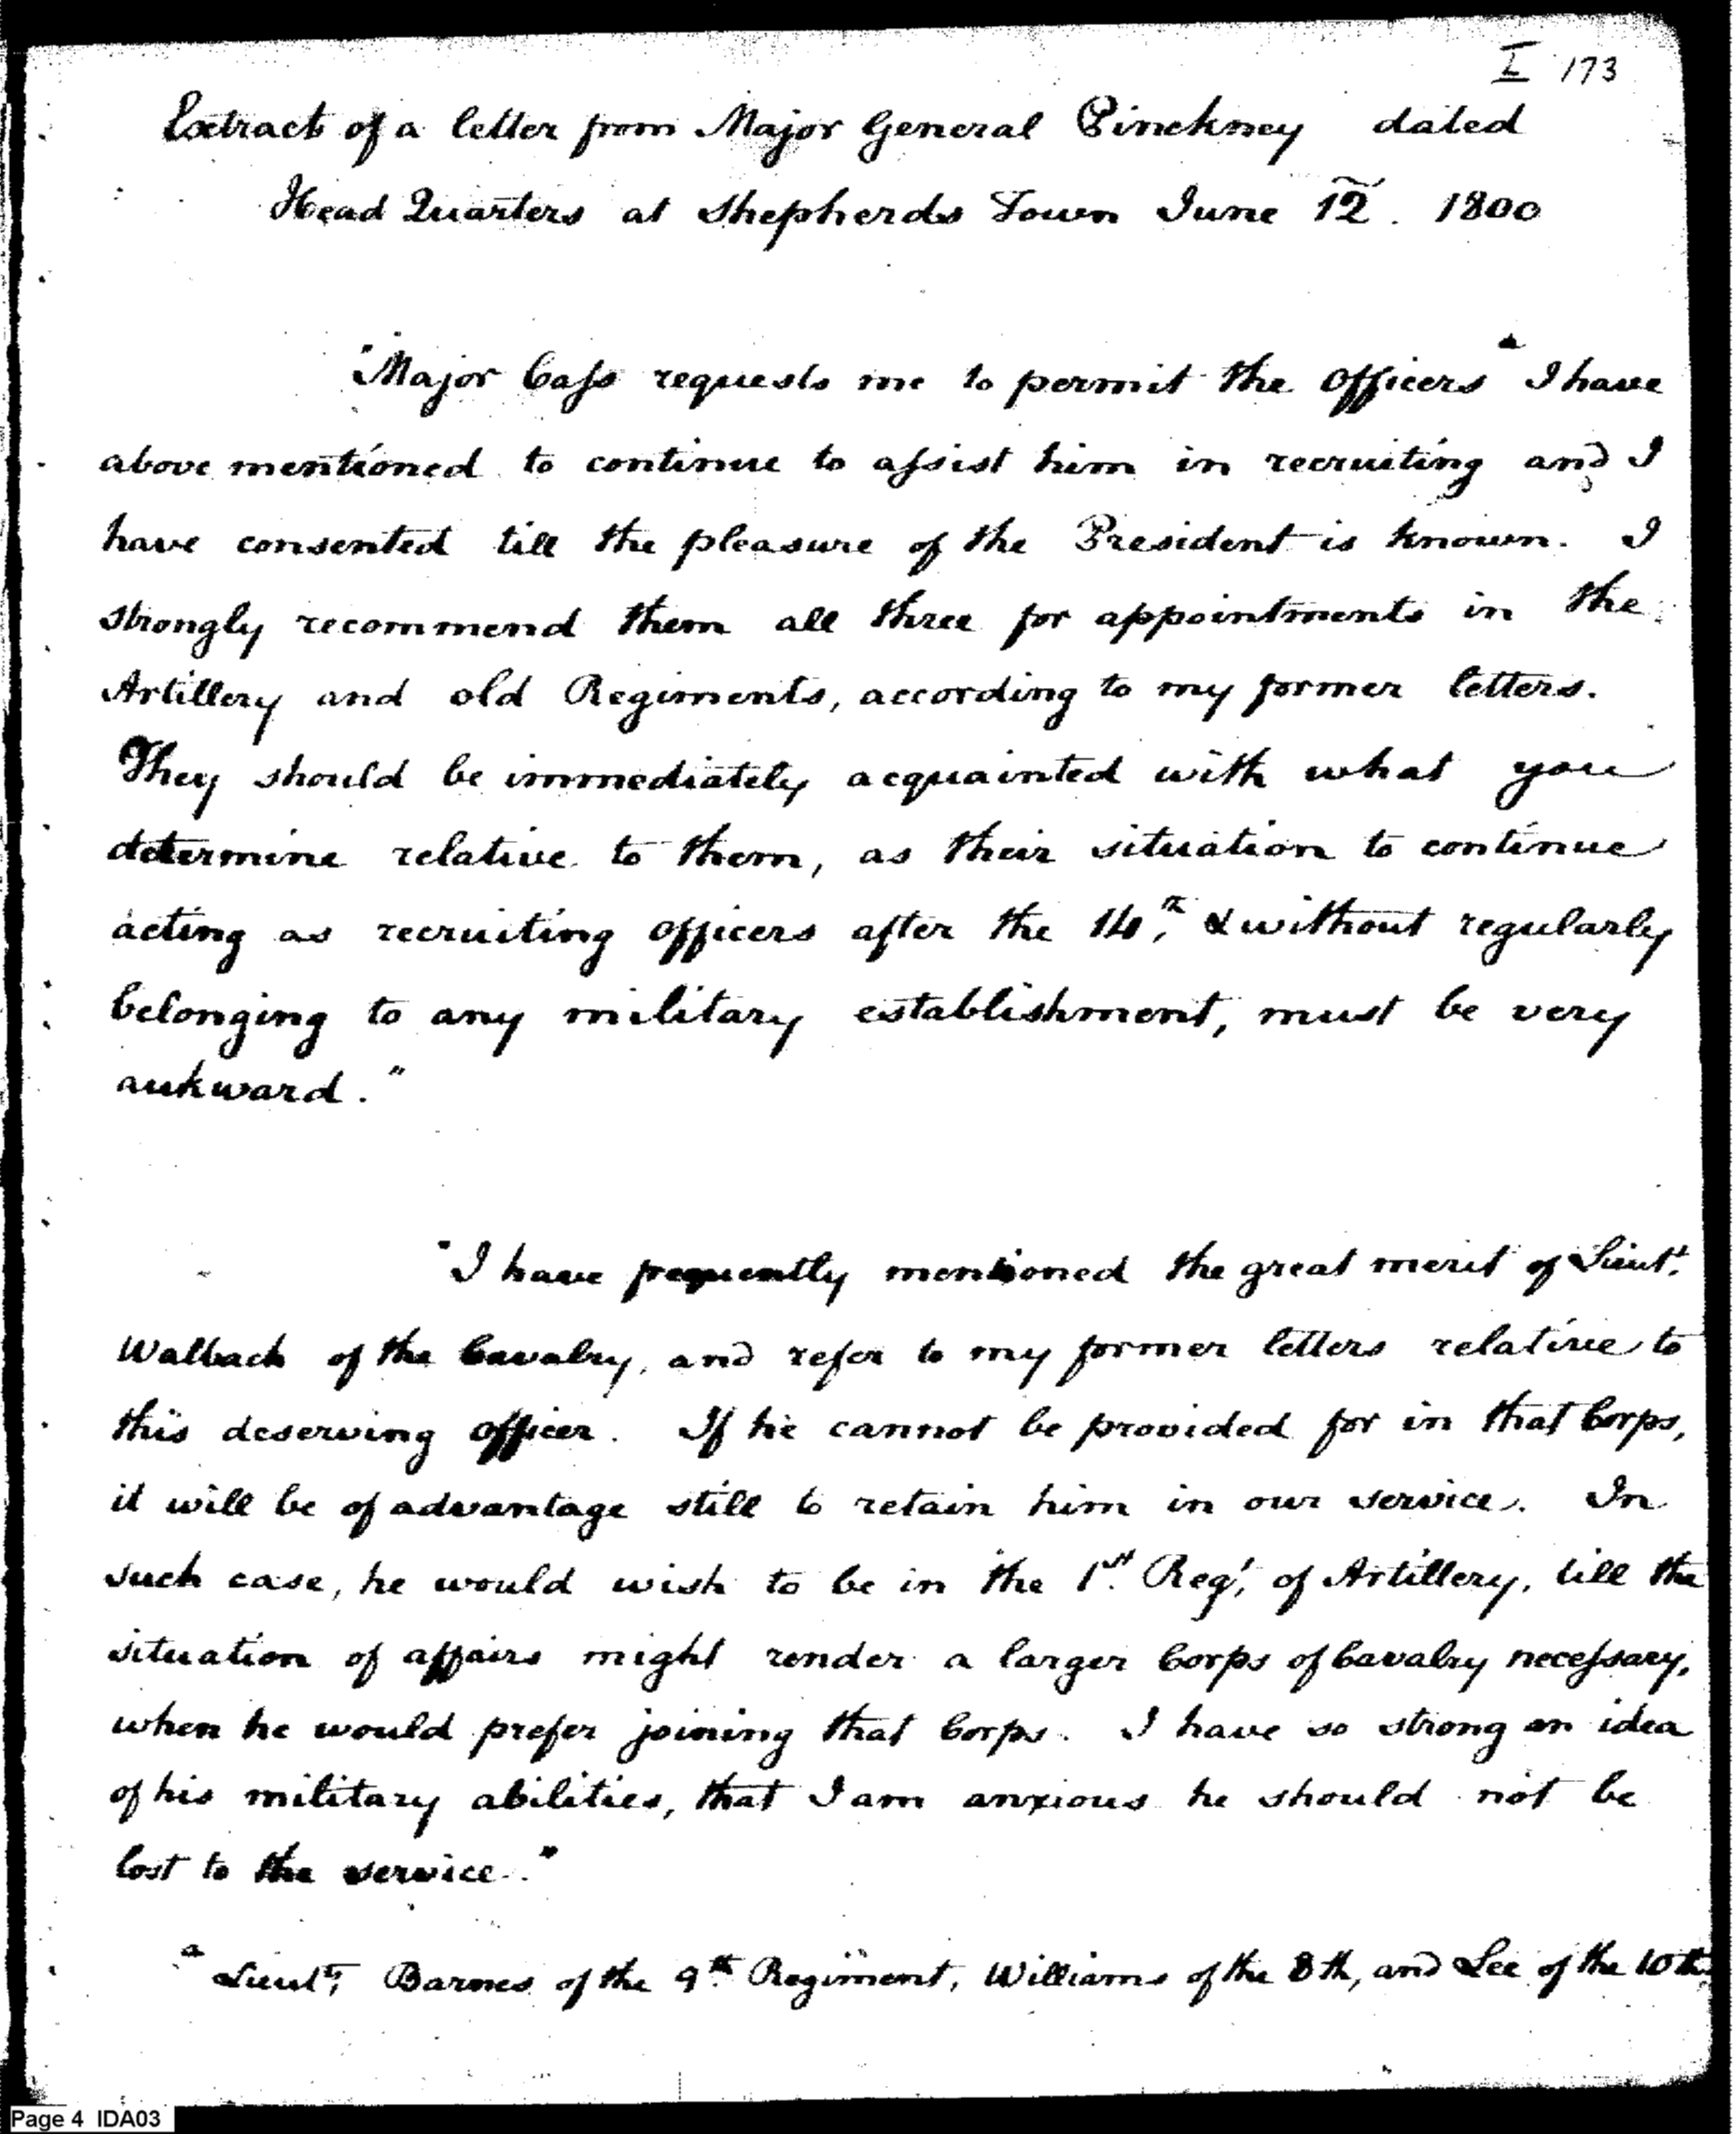 I 173
Extract of a letter from Major General Pinckney dated
Head Quarters at Shepherds Town June 12. 1800
"Major Cass requests me to permit the Officers a I have
above mentioned to continue to assist him in recruiting and I
have consented till the pleasure of the President is known. I
strongly recommend them all three for appointments in the
Artillery and old Regiments, according to my former letters.
They should be immediately acquainted with what you
determine relative to them, as their situation to continue
acting as recruiting officers after the 14th, & without regularly
belonging to any military establishment, must be very
aukward."
"I have frequently mentioned the great merit of Lieut.
Walback of the Cavalry, and refer to my former letters relative to
this deserving officer. If he cannot be provided for in that Corps,
it will be of advantage still to retain him in our service. In
such case, he would wish to be in the 1st. Regt, of Artillery, till the
situation of affairs might render a larger Corps of Cavalry necessary,
when he would prefer joining that Corps. I have so strong an idea
of his military abilities, that I am anxious he should not be
lost to the service."
a Lieuts, Barnes of the 9th Regiment, Williams of the 8th, and Lee of the 10th.
Page 4 IDA03